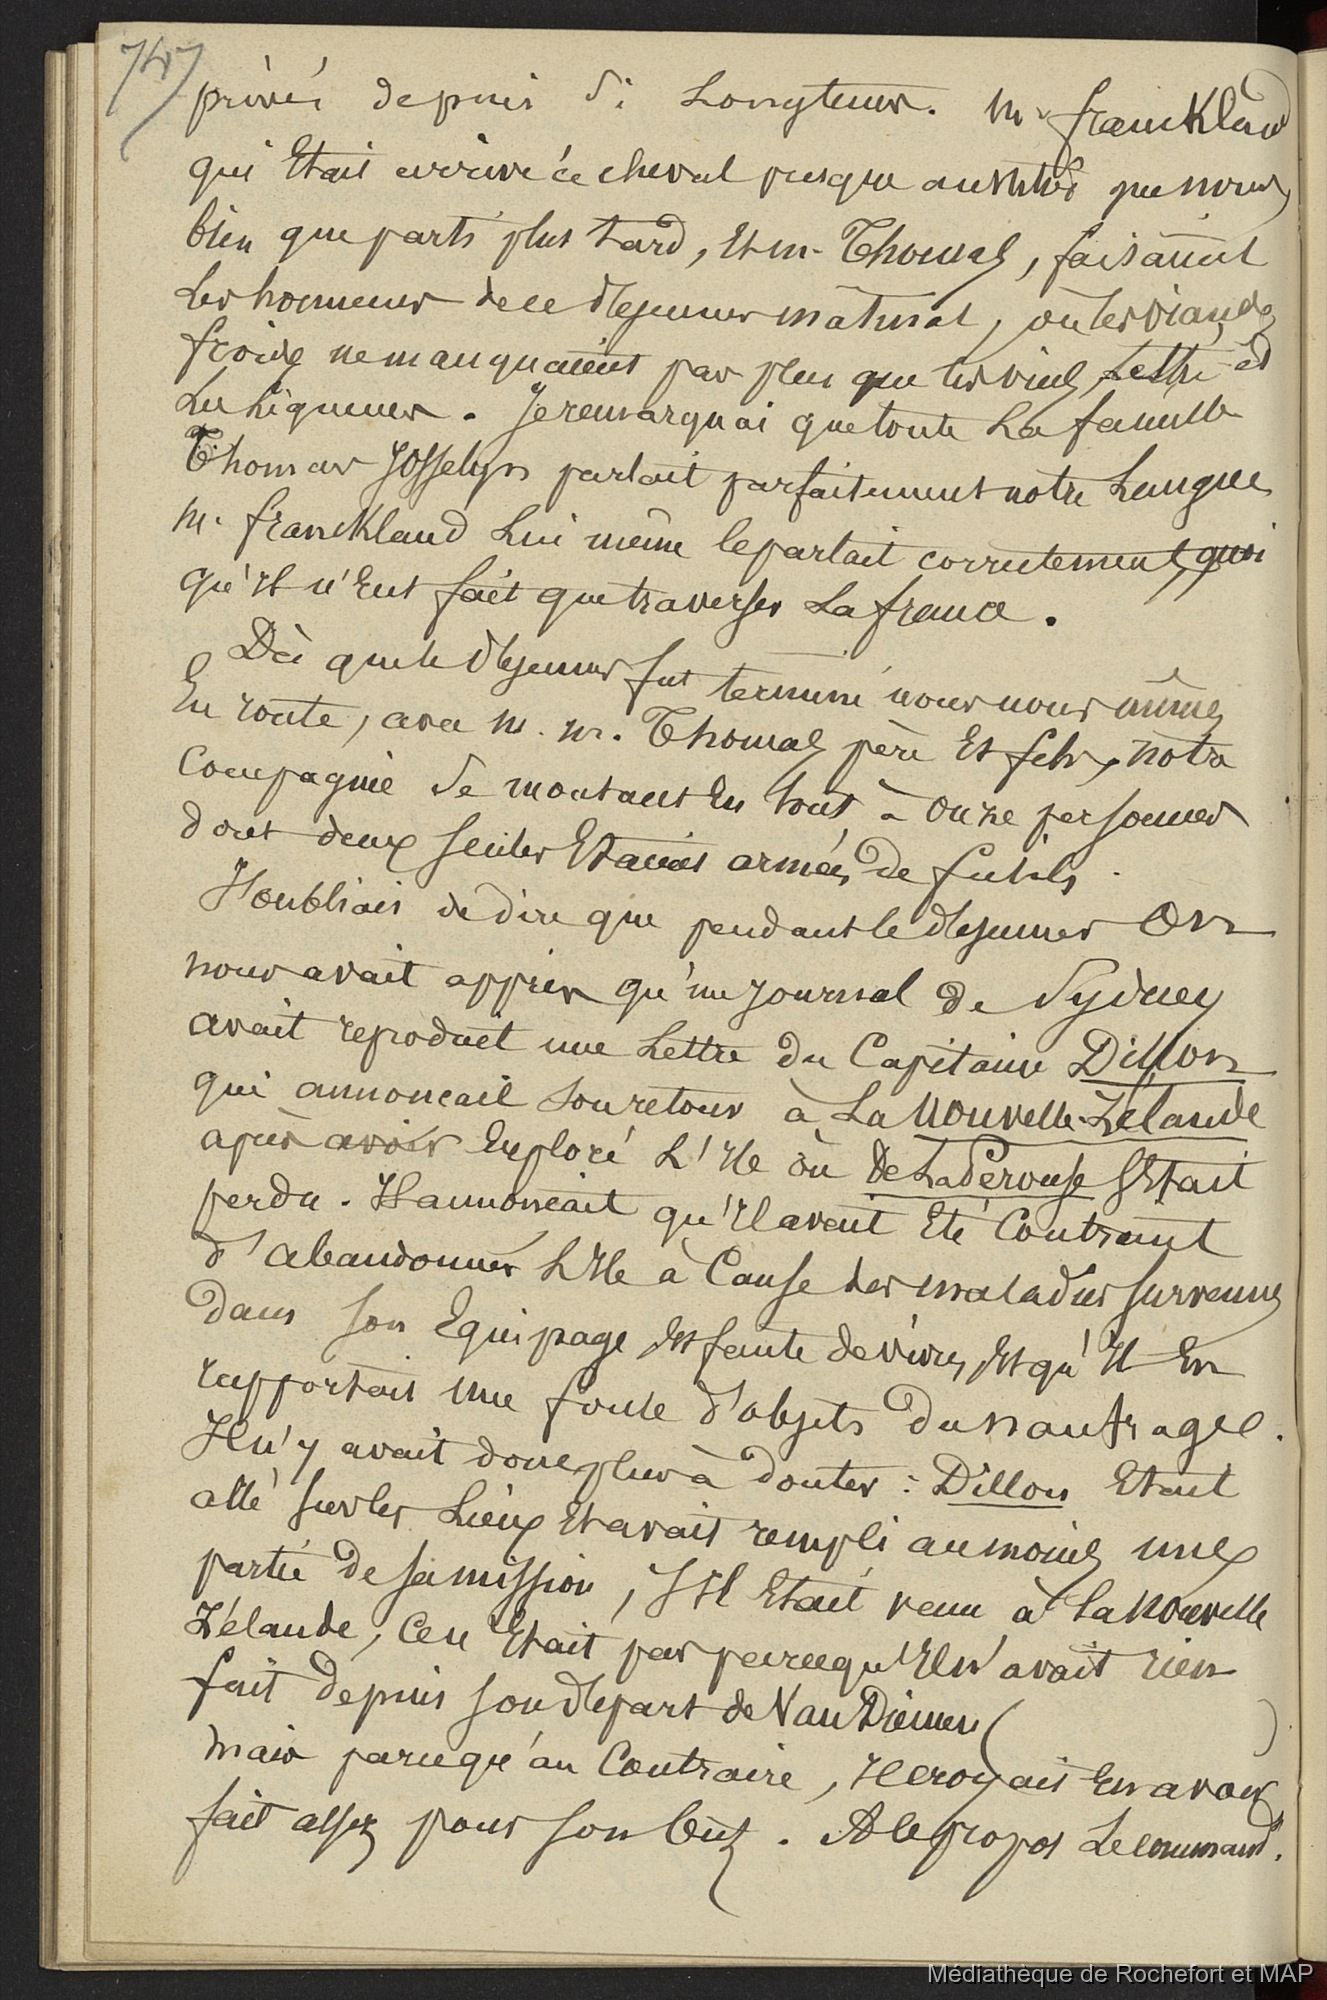 747
privés depuis si Longtems. M. franckland
qui Etait arrivé à cheval presque aussitôt que nous
bien que parti plus tard, Et M. Thomas, faisaient
Les honneurs de ce déjeuner matinal, où les viandes
froides ne manquaient pas plus que les vins, et
Les Liqueurs. Je remarquai que toute La famille
Thomas Josselyn parlait parfaitement notre Langue
M. franckland Lui même le parlait correctement, quoi
qu'Il n'Eut fait que traverser La france.
Dès que le déjeuner fut terminé nous nous mîmes
En route, avec M. M. Thomas père Et fils, notre
Compagnie se montant En tout à onze personnes
dont deux seules Etaient armées de fusils.
J'oubliais de dire que pendant le déjeuner On
nous avait appris qu'un journal de Sydney
avait reproduit une Lettre du Capitaine Dillon
qui annoncait son retour à La Nouvelle-Zélande
après avoir Exploré L'Ile où De La Pérouse s'Etait
perdu. Il annoncait qu'Il avait Eté Contraint
d'abandonner L'Ile à Cause des maladies survenues
dans son Equipage, Et faute de vivres, Et qu'Il En
rapportait une foule d'objets du naufrage.
Il n'y avait donc plus à douter : Dillon Etait
allé sur les Lieux Et avait rempli au moins une
partie de sa mission, s'Il Etait venu à La Nouvelle
Zélande, Ce n'Etait pas parcequ'Il n'avait rien
fait depuis son départ de Van Diemen
mais parcequ'au Contraire, Il croyait En avoir
fait assez pour son but. A ce propos Le command.t
Médiathèque de Rochefort et MAP